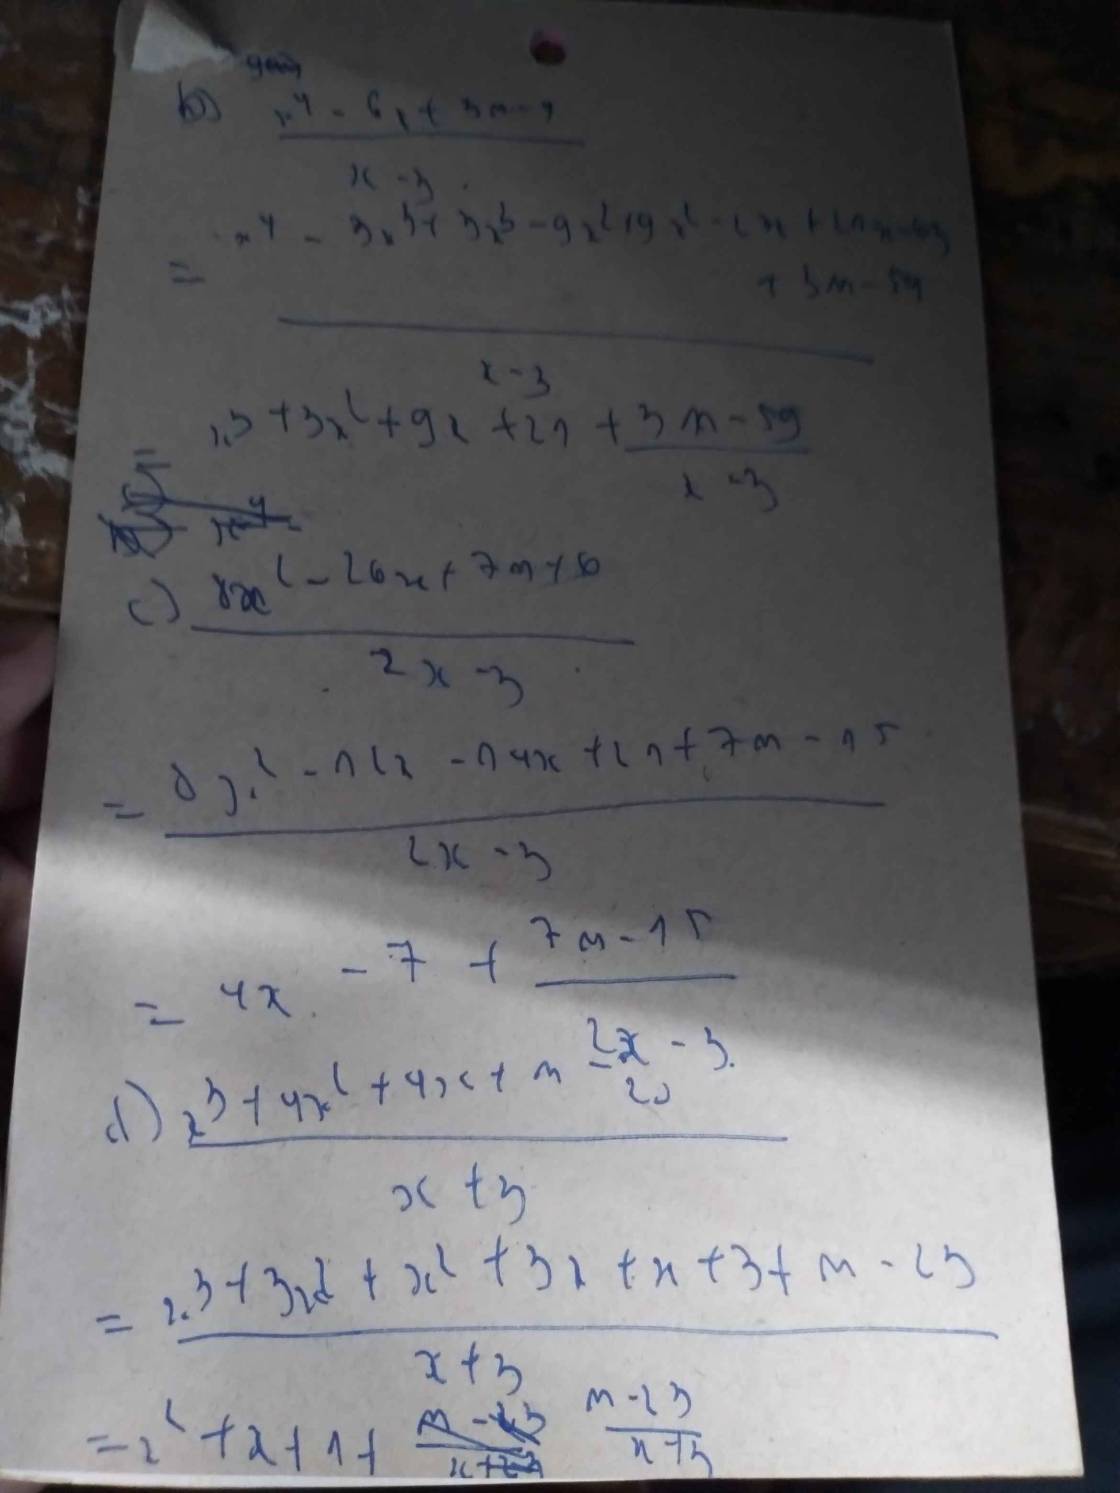 b) x⁴ - 6x + 3m - 9
x - 3
= x⁴ - 3x³ + 3x³ - 9x² + 9x² - 2x + 21x - 63 + 3m - 59
x - 3
= x³ + 3x² + 9x + 21 + 3m - 59
x - 3
c) 8x² - 26x + 7m + 6
2x - 3
= 8x² - 12x - 14x + 21 + 7m - 15
2x - 3
= 4x - 7 + 7m - 15
2x - 3
d) x³ + 4x² + 4x + m - 20
x + 3
= x³ + 3x² + x² + 3x + x + 3 + m - 23
x + 3
= x² + x + 1 + m - 23
x + 3